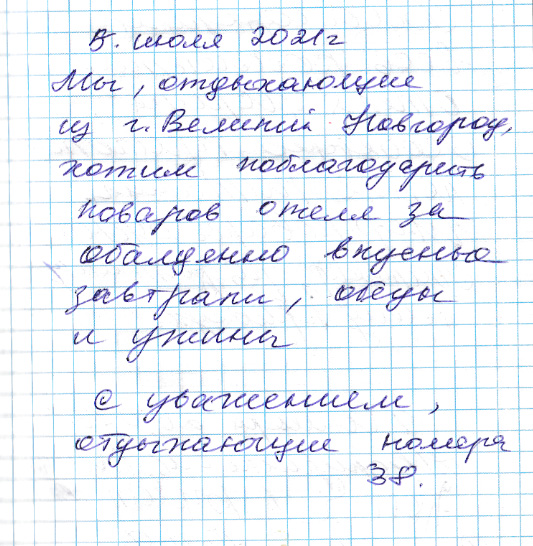 5. июля 2021г
Мы, отдыхающие
из г. Великий Новгород,
хотим поблагодарить
поваров отеля за
обалденно вкусные
завтраки, обеды
и ужины
С уважением,
отдыхающие номера
38.